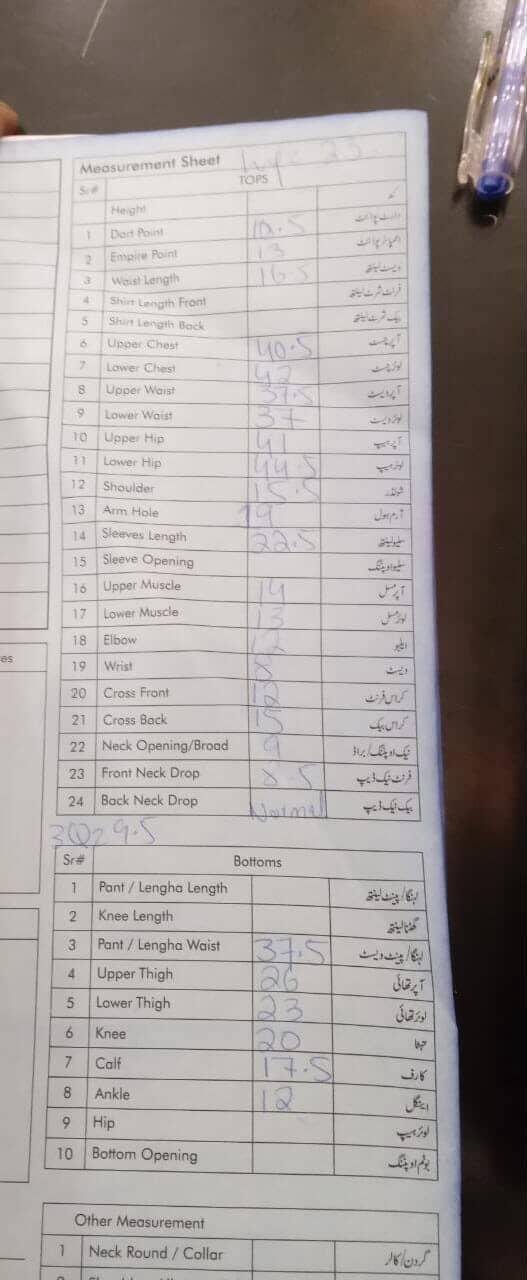 Measurement Sheet
Sr# TOPS
Height قد
1 Dart Point 10.5 ڈارٹ پوائنٹ
2 Empire Point 13 ایمپائر پوائنٹ
3 Waist Length 16.5 ویسٹ لینتھ
4 Shirt Length Front فرنٹ شرٹ لینتھ
5 Shirt Length Back بیک شرٹ لینتھ
6 Upper Chest 40.5 آپر چسٹ
7 Lower Chest 42 لوئر چسٹ
8 Upper Waist 37.5 آپر ویسٹ
9 Lower Waist 37 لوئر ویسٹ
10 Upper Hip 41 آپر ہیپ
11 Lower Hip 44.5 لوئر ہیپ
12 Shoulder 15.5 شولڈر
13 Arm Hole 19 آرم ہول
14 Sleeves Length 22.5 سلیو لینتھ
15 Sleeve Opening سلیو اوپننگ
16 Upper Muscle 14 آپر مسل
17 Lower Muscle 13 لوئر مسل
18 Elbow 12 ایلبو
19 Wrist ویسٹ
20 Cross Front 12 کراس فرنٹ
21 Cross Back 15 کراس بیک
22 Neck Opening/Broad 9 نیک اوپننگ/براڈ
23 Front Neck Drop .5 فرنٹ نیک ڈیپ
24 Back Neck Drop Normal بیک نیک ڈیپ
9.5
Sr# Bottoms
1 Pant / Lengha Length لہنگا/پینٹ لینتھ
2 Knee Length گھٹنا لینتھ
3 Pant / Lengha Waist 37.5 لہنگا/پینٹ ویسٹ
4 Upper Thigh 26 آپر تھائی
5 Lower Thigh 23 لوئر تھائی
6 Knee 20
7 Calf 17.5 کارف
8 Ankle 12 اینگل
9 Hip لوئر ہیپ
10 Bottom Opening بوٹم اوپننگ
Other Measurement
1 Neck Round / Collar گردن/کالر